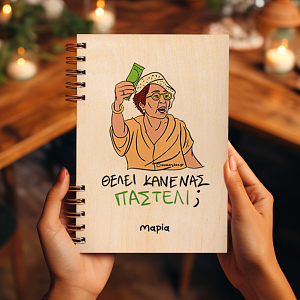 ΘΕΛΕΙ ΚΑΝΕΝΑΣ
ΠΑΣΤΕΛΙ;
Μαρία